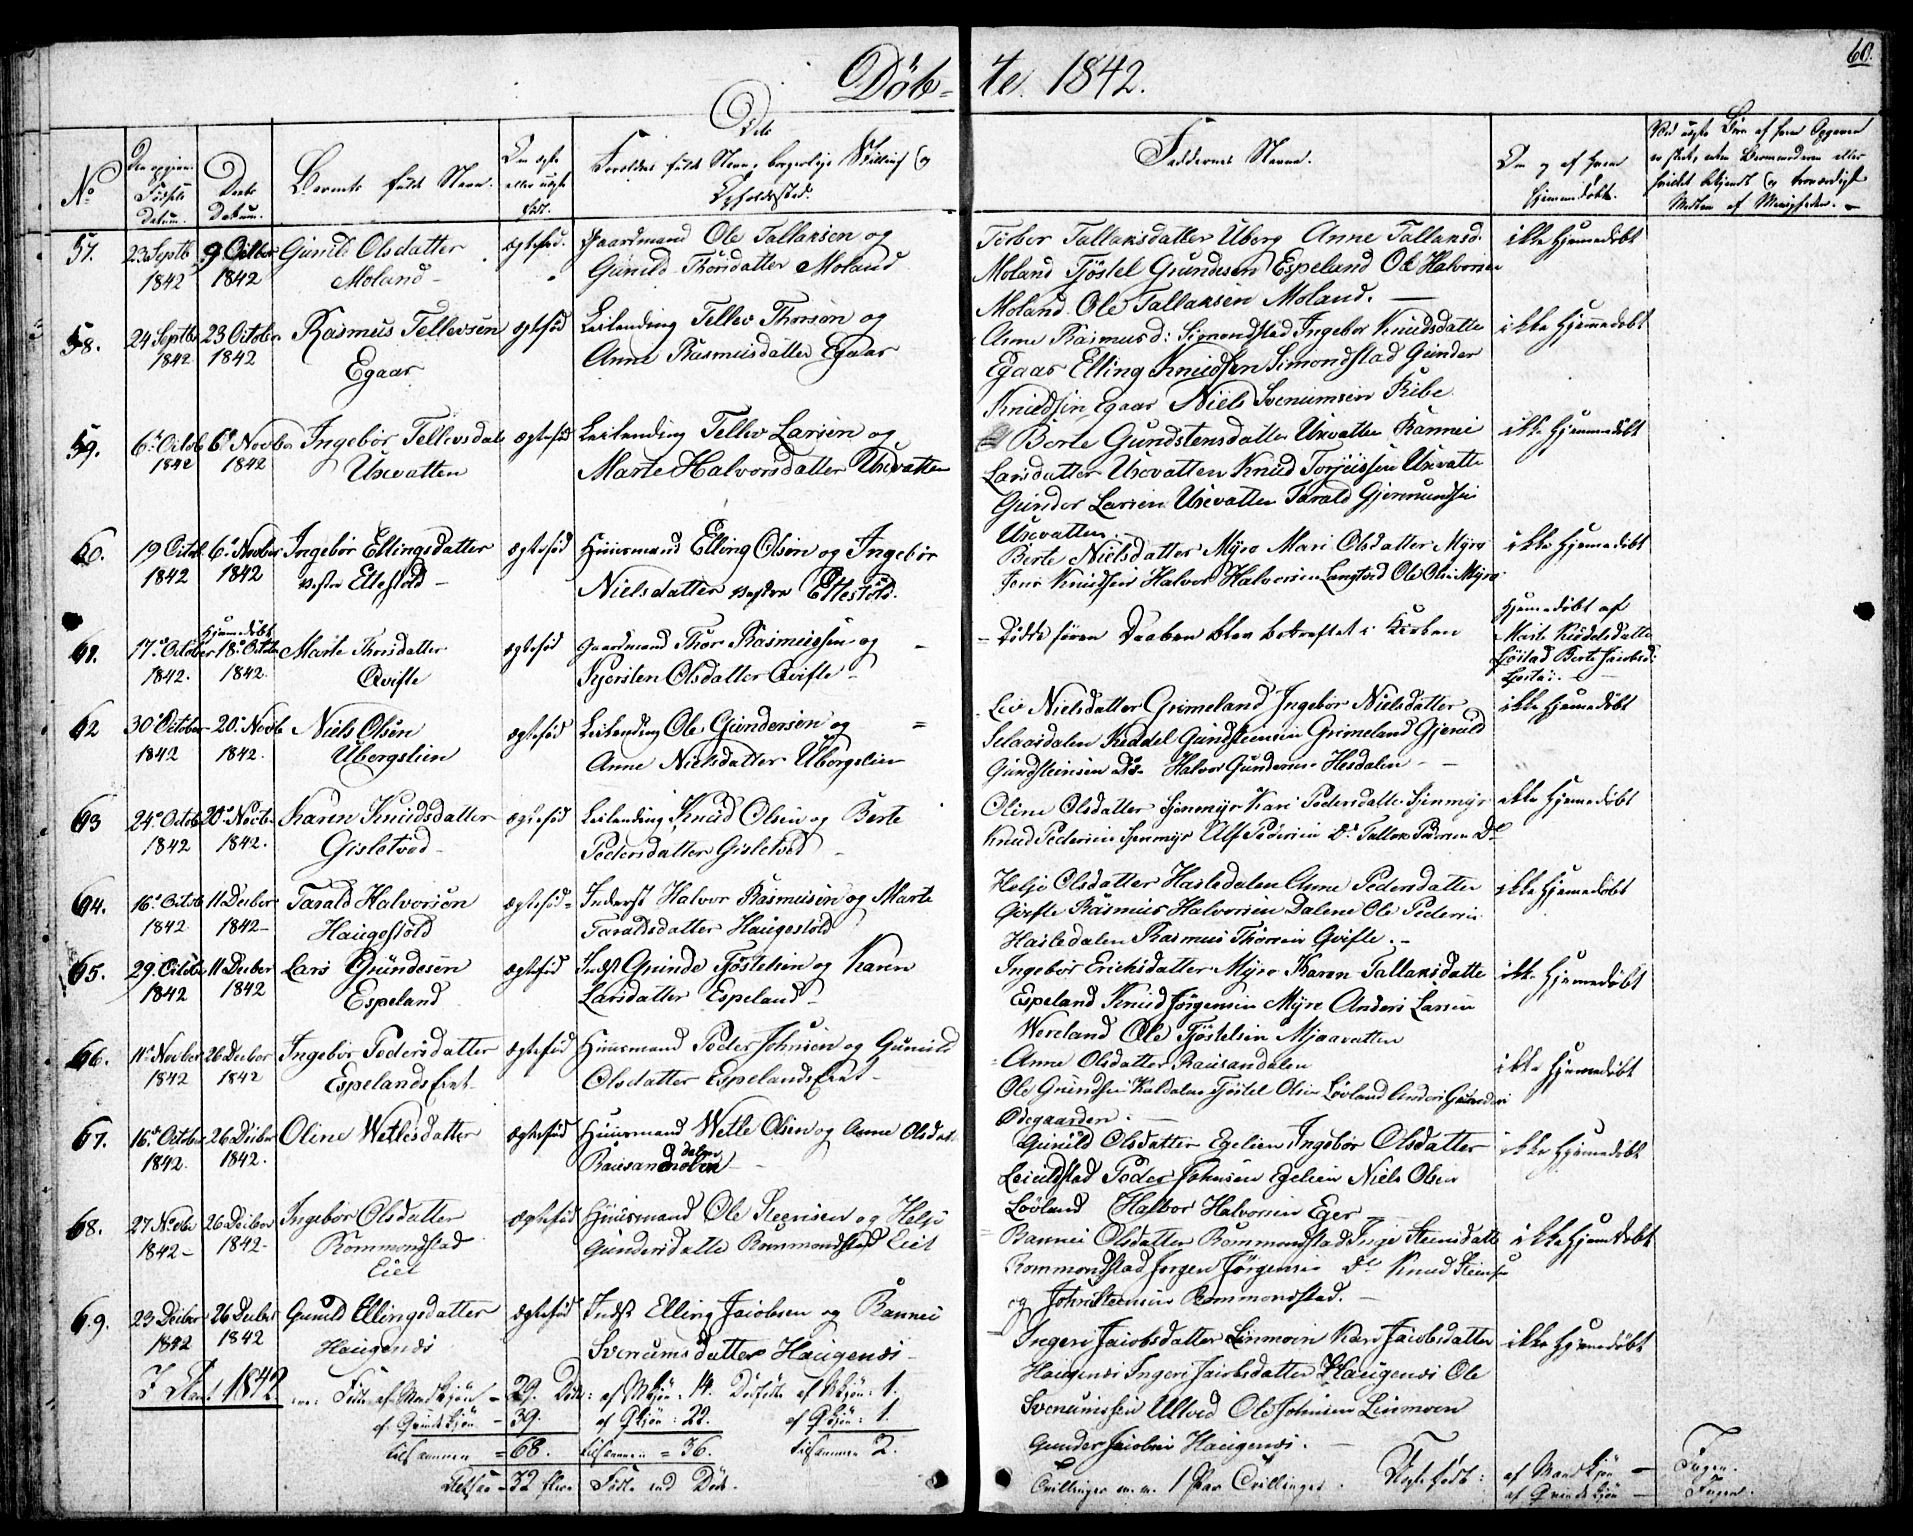 Döb-
te 1842.
60.
No
Datum.
Daabs
Datum.
Barnets fulde Navn.
Faddernes Navne.
57.
23 Septb
1842
9 Octbr
1842
Gunild Olsdatter
Moland
ægtefød.
Gaardmand Ole Tallaksen og
Gunild Thorsdatter Moland
Torbor Tallaksdatter Uberg Anne Tallaksd.
Moland Tjöstel Gundesen Espeland Ole Halvorsen
Moland Ole Tallaksen Moland.
ikke Hjemmedöbt
58.
24 Septbr
1842
23 October
1842
Rasmus Tellevsen
Egaar
ægtefød
Leilending Tellev Thorsen og
Anne Rasmusdatter Egaar
Anne Rasmusd: Simondstad Ingebor Knudsdatte
Egaar Elling Knudsen Simondstad Gunder
Knudsen Egaar Niels Svenumsen Ribe
ikke Hjemmedöbt
59.
6. Octob
1842
6 Novbr
1842
Ingebor Tellevsdat
Uxevatten
ægtefød
Leilending Tellev Larsen og
Marte Halvorsdatter Uxevatten
Berte Gundstensdatter Uxevatten Rannei
Larsdatter Uxevatten Knud Torjussen Uxevatte
Gunder Larsen Uxevatten Tarald Gjermundsen
Uxevatten
ikke Hjemmedöbt
60.
19 Octob
1842
6 Novbr
1842
Ingebor Ellingsdatter
vestre Ettestöld
ægtefød
Huusmand Elling Olsen og Ingebor
Nielsdatter vestre Ettestöld.
Berte Nielsdatter Myre Mari Olsdatter Myre
Jens Knudsen Halvor Halvorsen Langtved Ole Olsen Myre
ikke Hjemmedöbt
61.
17 October
1842.
Hjemmedöbt
18 Octobr
1842.
Marte Thorsdatter
Qvifte
ægtefød
Gaardmand Thor Rasmussen og
Kjersten Olsdatter Qvifte
Döde förend Daaben blev bekræftet i Kirken
Hjemmedöbt af
Marte
Berte Jacobsd:
62
30 October
1842
20. Novb
1842.
Niels Olsen
Ubergslien
ægtefød
Leilending Ole Gundersen og
Anne Nielsdatter Ubergslien
Liv Nielsdatter Grimeland Ingebor Nielsdatter
Selaasdalen Keddel Gundsteensen Grimeland Gjeruld
Gundsteinsen do Halvor Gundersen Hesdalen
ikke Hjemmedöbt
63
24 Octob
1842
20 Novb
1842.
Karen Knudsdatter
Gisletved
ægtefød
Leilending Knud Olsen og Berte
Pedersdatter Gisletved
Oline Olsdatter Kari Pedersdatte
Knud Pedersen Alf Pedersen Do Tallak Pedersen Do
ikke Hjemmedöbt
64.
16 Octob
1842
11 Decber
1842
Tarald Halvorsen
Haugestöld
ægtefød
Inderst Halvor Rasmusen og Marte
Taraldsdatter Haugestöld
Helje Olsdatter Hasledalen Anne Pedersdatter
Qvifte Rasmus Halvorsen Dalene Ole Pedersen
Hasledalen Rasmus Thorsen Qvifte.
ikke Hjemmedöbt
65.
29. Octob
1842
11 Decber
1842
Lars Gundesen
Espeland
ægtefød
Indst Gunde Tjöstelsen og Karen
Larsdatter Espeland
Ingebor Ericksdatter Myre Karen Tallaksdatte
Espeland Knud Jörgensen Myre Anders Larsen
Wereland Ole Tjöstelsen Mjaavatten
ikke Hjemmedöbt
66.
11 Novber
1842
26 Decber
1842
Ingebor Pedersdatter
Espelands Eiet
ægtefød
Huusmand Peder Johnsen og Gunild
Olsdatter Espelands Eiet
Anne Olsdatter Rausandalen
Ole Gundsen Kaldalen Tjöstel Olsen Lövland Anders Gundersen
Ödegaarden
ikke Hjemmedöbt
67.
16 October
1842.
26 Decber
1842.
Oline Wetlesdatter
ægtefød
Huusmand Wetle Olsen og Anne Olsdat
Rausandalen
Gunild Olsdatter Egelien Ingebor Olsdatter
Peder Johnsen Egelien Niels Olsen
Lövland Halvor Halvorsen Eger
ikke Hjemmedöbt
68.
27 Novbr
1842
26 Decber
1842
Ingebor Olsdatter
Rommondstad
Eiet
ægtefød
Huusmand Ole Steensen og Helje
Gundersdatte Rommondstad Eiet
Rannei Olsdatter Rommondstad Inge Steensdatte
Rommondstad Jorgen Jörgensen Do Knud Steensen
og John Steensen Rommondstad.
ikke Hjemmedöbt
69.
23 Decber
1842
26 Decber
1842
Gunild Ellingsdatter
Haugenes
ægtefød
Indst Elling Jacobsen og Rannei
Svenumsdatter Haugenes
Ingeri Jacobsdatter Linmoen Kari Jacobsdatter
Haugenes Ingeri Jacobsdatter Haugenes Ole
Svenumsen Ulltved Ole Johnsen Linmoen
Gunder Jacobsen Haugenes.
ikke Hjemmedöbt
I Aaret 1842
Födte af Mandkjön - 29. Döde: af Mkjön: 14. Dödfödte af Mkjön: 1.
af Qvindekjön - 39. af Qkjön: 22. af Qkjön: 1.
tilsammen = 68. tilsammen = 36. tilsammen 2.
Altsaa - 32 flere Födte end Döde.
Tvillinger 1 Par Tvillinger. Uægte födt: af Mandkjön - Ingen.
af Qvindekjön - Ingen.